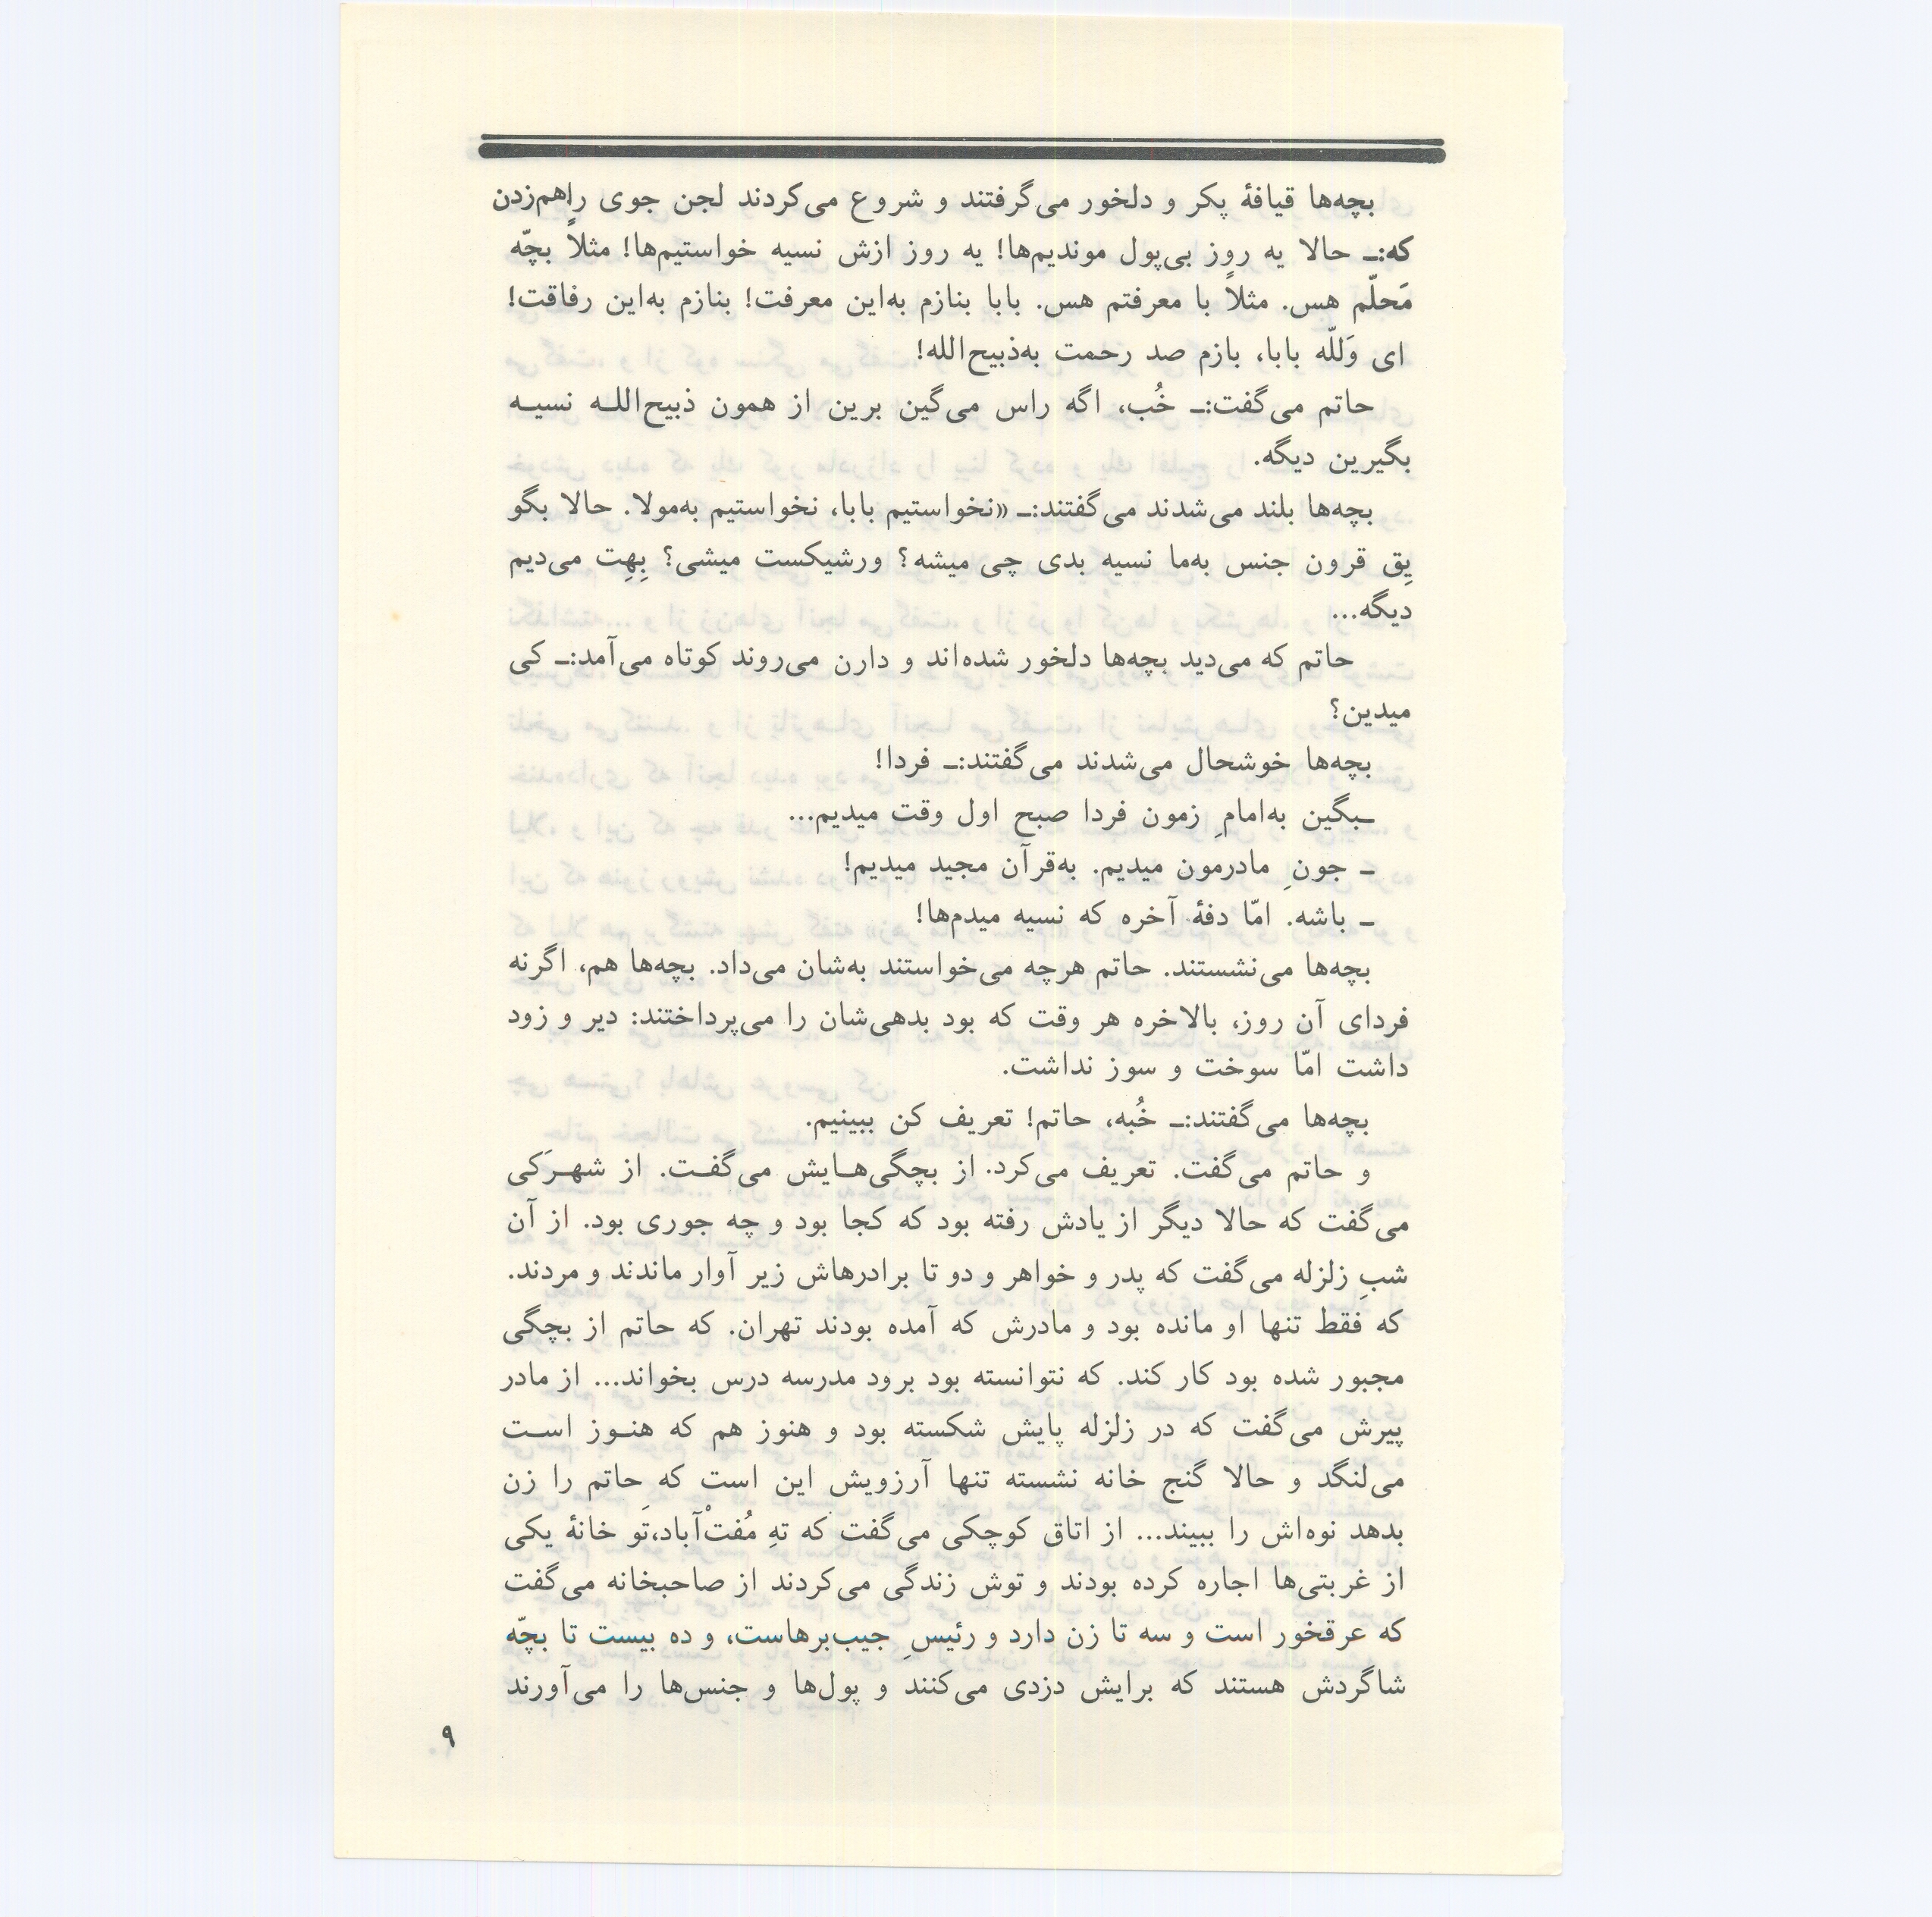 بچه‌ها قیافهٔ پکر و دلخور می‌گرفتند و شروع می‌کردند لجن جوی راهم‌زدن
که:ـ حالا یه روز بی‌پول موندیم‌ها! یه روز ازش نسیه خواستیم‌ها! مثلاً بچّه
مَحلّم هس. مثلاً با معرفتم هس. بابا بنازم به‌این معرفت! بنازم به‌این رفاقت!
ای وَللّه بابا، بازم صد رحمت به‌ذبیح‌الله!
حاتم می‌گفت:ـ خُب، اگه راس می‌گین برین از همون ذبیح‌اللـه نسیـه
بگیرین دیگه.
بچه‌ها بلند می‌شدند می‌گفتند:ـ «نخواستیم بابا، نخواستیم به‌مولا. حالا بگو
یِق قرون جنس به‌ما نسیه بدی چی میشه؟ ورشیکست میشی؟ بِهِت می‌دیم
دیگه...
حاتم که می‌دید بچه‌ها دلخور شده‌اند و دارن می‌روند کوتاه می‌آمد:ـ کی
میدین؟
بچه‌ها خوشحال می‌شدند می‌گفتند:ـ فردا!
ـبگین به‌امامِ زمون فردا صبح اول وقت میدیم...
ـ جونِ مادرمون میدیم. به‌قرآن مجید میدیم!
ـ باشه. امّا دفهٔ آخره که نسیه میدم‌ها!
بچه‌ها می‌نشستند. حاتم هرچه می‌خواستند به‌شان می‌داد. بچه‌ها هم، اگرنه
فردای آن روز، بالاخره هر وقت که بود بدهی‌شان را می‌پرداختند: دیر و زود
داشت امّا سوخت و سوز نداشت.
بچه‌ها می‌گفتند:ـ خُبه، حاتم! تعریف کن ببینیم.
و حاتم می‌گفت. تعریف می‌کرد. از بچگی‌هـایش می‌گفـت. از شهـرَکی
می‌گفت که حالا دیگر از یادش رفته بود که کجا بود و چه جوری بود. از آن
شبِ زلزله می‌گفت که پدر و خواهر و دو تا برادرهاش زیر آوار ماندند و مردند.
که فقط تنها او مانده بود و مادرش که آمده بودند تهران. که حاتم از بچگی
مجبور شده بود کار کند. که نتوانسته بود برود مدرسه درس بخواند... از مادر
پیرش می‌گفت که در زلزله پایش شکسته بود و هنوز هم که هنـوز اسـت
می‌لنگد و حالا گنج خانه نشسته تنها آرزویش این است که حاتم را زن
بدهد نوه‌اش را ببیند... از اتاق کوچکی می‌گفت که تهِ مُفتْ‌آباد،تَو خانهٔ یکی
از غربتی‌ها اجاره کرده بودند و توش زندگی می‌کردند از صاحبخانه می‌گفت
که عرقخور است و سه تا زن دارد و رئیسِ جیب‌برهاست، و ده بیست تا بچّه
شاگردش هستند که برایش دزدی می‌کنند و پول‌ها و جنس‌ها را می‌آورند
۹